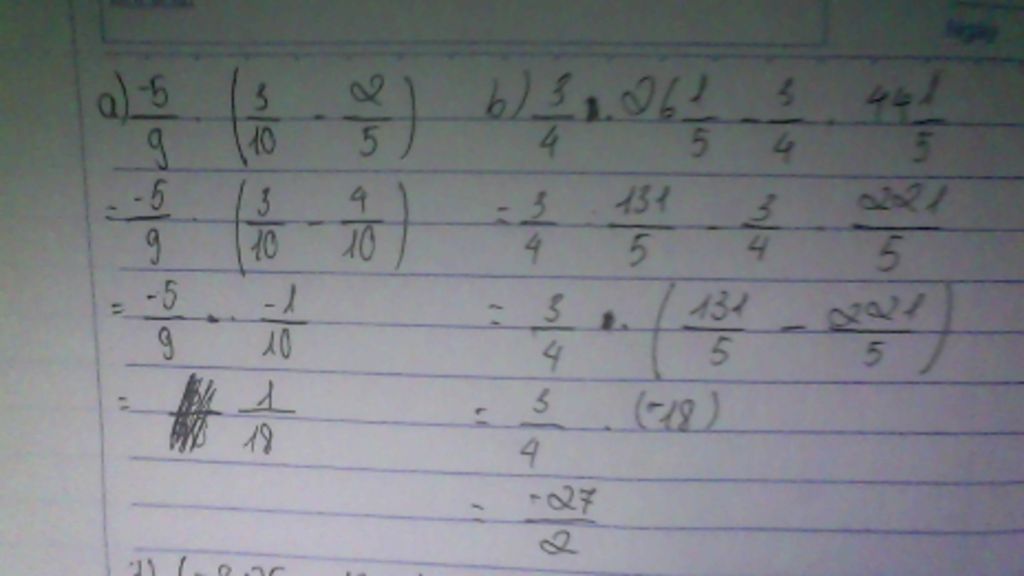 a) -5/9 · (3/10 - 2/5)
= -5/9 · (3/10 - 4/10)
= -5/9 · -1/10
= 1/18
b) 3/4 · 26 1/5 - 3/4 · 44 1/5
= 3/4 · 131/5 - 3/4 · 221/5
= 3/4 · (131/5 - 221/5)
= 3/4 · (-18)
= -27/2